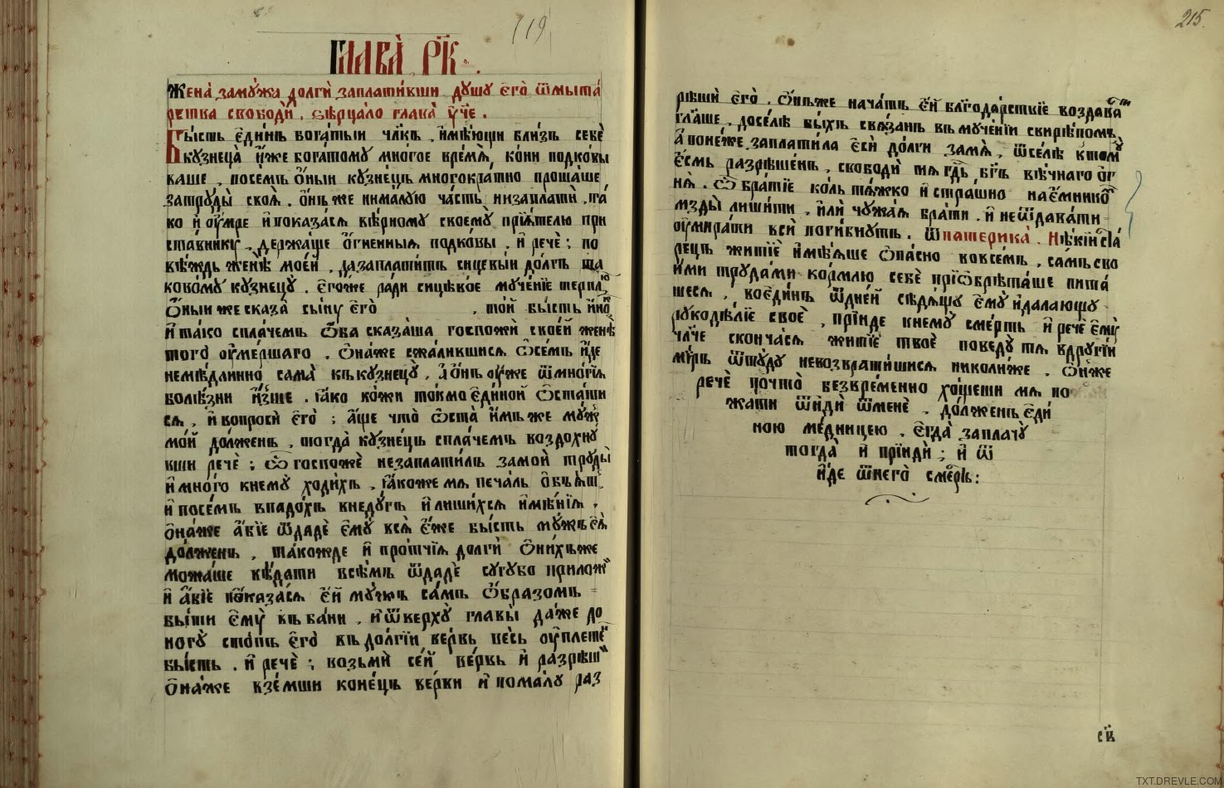 119
Глава̀ Р҃К.
Жена̀ заму́жа долги̑ заплати́вши душу̀ єго̀ ѿмыта́
рства свободи̑. ѕѣрцало глава̀ у҃че.
Бы́сть є҆ди́нъ богаты́и чл҃къ, и҆мѣ́ющи близъ себѐ
кузнеца̀ и҆́же бога́тому мно́гое вре́мѧ, ко́ни подковы
ваше, посе́мъ ѻ҆́ныи кузне́цъ многокра́тно проша́ше
затруды̀ своѧ̀. ѻ҆́нъ же нима́лую ча́сть низаплатѝ. та́
ко и҆ ѹ҆́мре и҆ показа́сѧ вѣ́рному своему̀ прїѧ́телю при
ста́внику, держа́ще ѻ҆́гненныѧ подко́вы. и҆ речѐ: по
вѣ́ждь женѣ̀ мое́й, да запла́титъ сицевы́и до́лгъ та
ковому кузнецу̀. є҆го́же ради сицѣ́вое муче́нїе терплю̀
Ѻ҆́ныи же сказа̀ сы́ну є҆го̀ , то́й бы́сть и҆но
и҆ та́ко спла́чемъ ѻ҆́ба сказа́ша госпожѝ свое́й женѣ̀
того̀ ѹ҆ме́ршаго. Ѻ҆на́же сжа́лившисѧ ѽсе́мъ и҆́де
неме́длинно сама̀ къ кузнецу̀, и҆ ѻ҆́нъ ѹ҆́же ѿ мно́гїѧ
болѣ́зни и҆́зше. ꙗ҆́ко ко́жи то́кмо є҆ди́ной ѽста́ти
сѧ, и҆ вопросѝ є҆го̀; а҆́ще что̀ ѽста̀ и҆́мъ же му́жъ
мо́й до́лженъ, тогда̀ кузне́цъ спла́чемъ воздохну́
вши речѐ; ѽ госпожѐ незаплати́лъ замо́й труды̀
и҆ мно́го кнему̀ ходи́хъ, ꙗ҆́коже мѧ печа́ль ѻ҆б̾ѧ́тъ
и҆ посе́мъ впадо́хъ кнеду́гъ и҆ лиши́хсѧ и҆мѣ́нїѧ,
ѻ҆на́же а҆́бїе ѿдадѐ є҆му̀ всѧ̀ є҆́же бы́сть му́жъ є҆ѧ̀
до́лженъ, та́кожде и҆ про́тчїѧ долгѝ ѻ҆ни́хъже
можа́ше вѣ́дати всѣ́мъ ѿдадѐ сугу́бо прилож
и҆ а҆́бїе показа́сѧ є҆́й му́жъ са́мъ ѻ҆́бразомъ
бы́ти є҆му̀ въ ба́ни. и҆ ѿ ве́рху главы̀ да́же до
ногу̀ сто́пъ є҆го̀ въ до́лгїи ве́рвь ве́сь ѹ҆пле́тенъ
бы́сть. и҆ речѐ; возьмѝ се́й ве́рвь и҆ разрѣшѝ
Ѻ҆на́же взе́мши коне́цъ ве́рви и҆ пома́лу раз
215
рѣшѝ є҆го̀. Ѻ҆́нъже нача́тъ є҆́й благода́рствїе воздава
глаше, досе́лѣ бы́хъ свѧ́занъ въ муче́нїи свирѣ́помъ
а҆ поне́же заплати́ла є҆сѝ долгѝ замѧ̀, ѿсе́лѣ ктому̀
є҆́смь разрѣше́нъ, свободѝ тѧ гдⷭ҇ь бг҃ъ вѣ́чнаго ѻ҆г
нѧ̀. Ѽ бра́тїе ко́ль тѧ́жко и҆ стра́шно нае́мнико
мзды̀ лиши́ти, и҆лѝ чужа́ѧ бра́ти. и҆ неѿдава́ти
ѹ҆мира́ти всѝ поги́внуть. Ѿпатерика̀. Нѣ́кїи ста́
рецъ житїѐ и҆мѣ́ѧше ѻ҆па́сно вовсе́мъ, са́мъ сво
и҆́ми труда́ми ко́рмлю себѐ прїѡбрѣта́ше пита
шесѧ, вое́динъ ѿдне́й сѣдѧ́щу є҆му̀ и҆ дѣ́лающу
рукодѣ́лїе своѐ, прїи́де кнему̀ сме́рть и҆ речѐ є҆му̀
чл҃че сконча́сѧ житїѐ твоѐ поведу̀ тѧ вдругі́и
ми́ръ ѿтуду̀ невозврати́шисѧ николи́же. Ѻ҆́нже
речѐ почто̀ безвре́менно хо́щеши мѧ по
жа́ти ѿидѝ ѿменѐ. до́лженъ є҆ди
ною ме́дницею. є҆гда̀ заплачу̀
тогда̀ и҆ прїидѝ; и҆ ѿ
и҆́де ѿнего̀ сме́рть:
TXT.DREVLE.COM